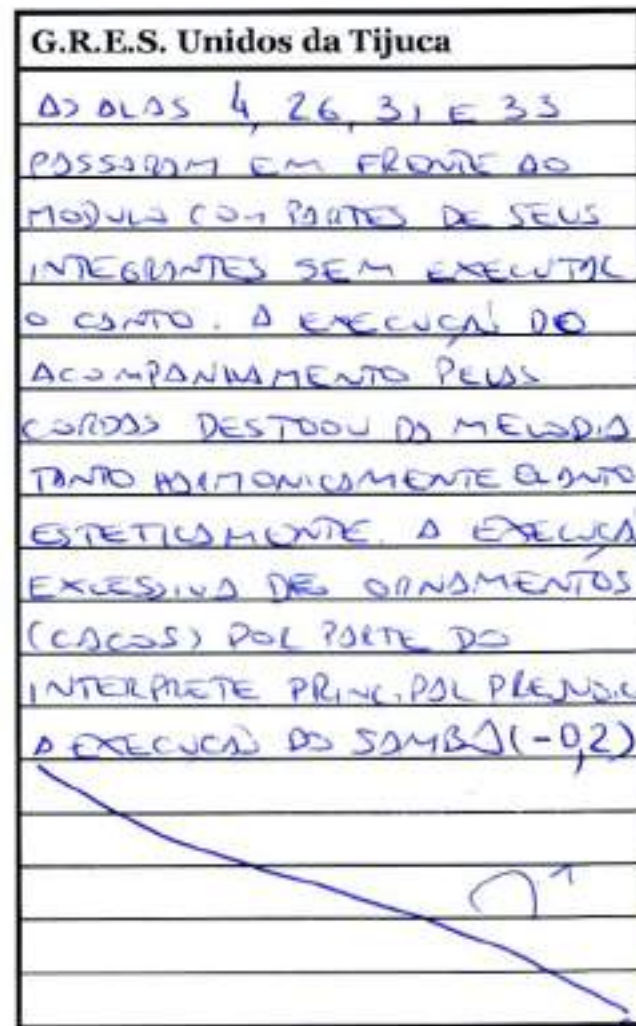 G.R.E.S. Unidos da Tijuca
AS ALAS 4, 26, 31 E 33
PASSARAM EM FRENTE AO
MODULO COM PARTES DE SEUS
INTEGRANTES SEM EXECUTAR
O CANTO. A EXECUÇAO DO
ACOMPANHAMENTO PELAS
CORDAS DESTOOU DA MELODIA
TANTO HARMONICAMENTE QUANTO
ESTETICAMENTE. A EXECUÇA
EXCESSIVA DE ORNAMENTOS
(CACOS) POR PARTE DO
INTERPRETE PRINCIPAL PREJUDIC
A EXECUCAO DO SAMBA (-0,2)